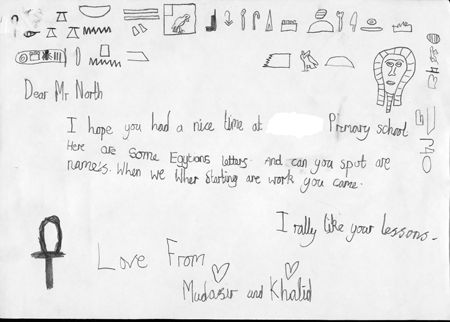 Dear Mr North
I hope you had a nice time at Primary school
Here are some Egytions letters. And can you spot are
name's. When we wher starting are work you came.
I rally like your lessons.
Love From
Mudasir and Khalid